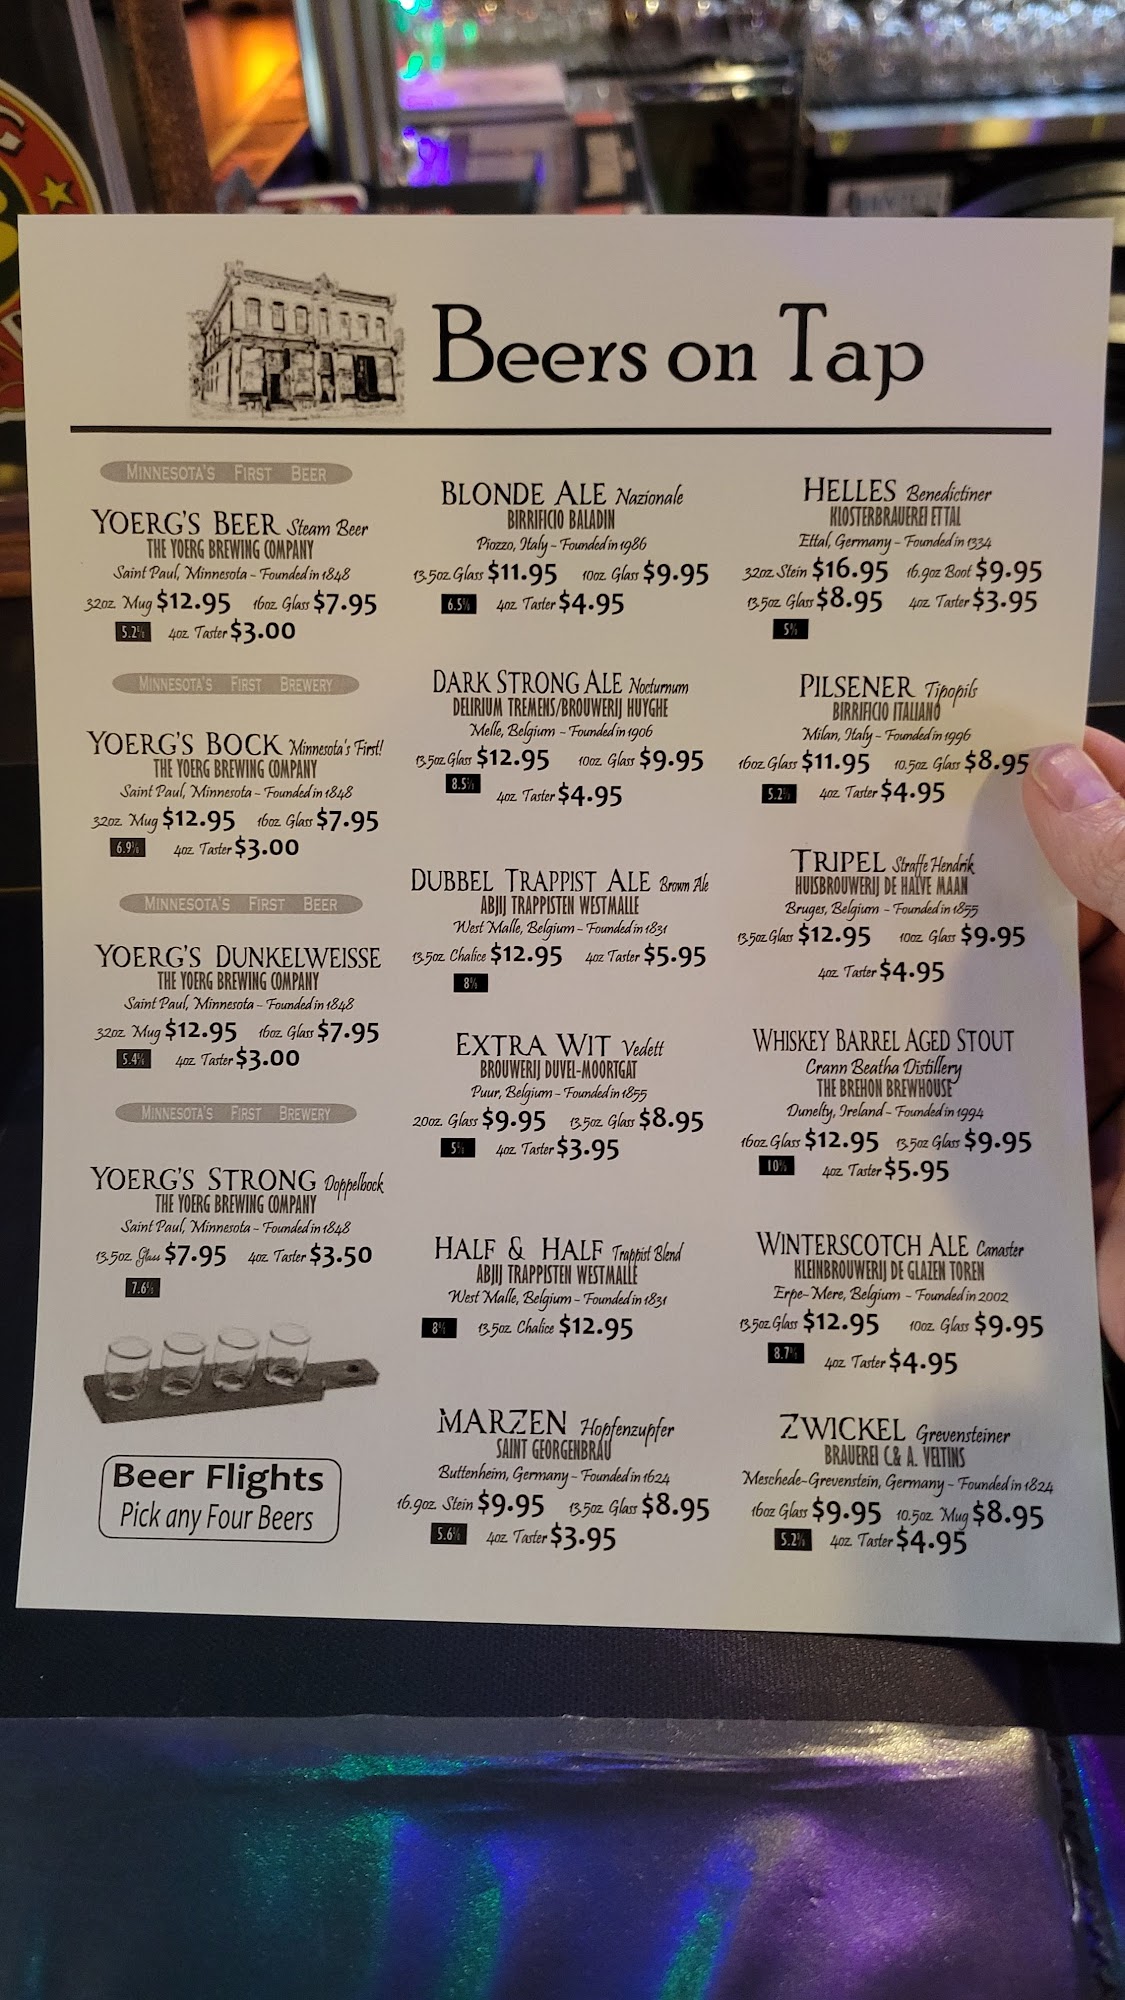 Beers on Tap
MINNESOTA'S FIRST BEER
YOERG'S BEER Steam Beer
THE YOERG BREWING COMPANY
Saint Paul, Minnesota - Founded in 1848
32oz Mug $12.95 16oz Glass $7.95
5.2% 4oz Taster $3.00
MINNESOTA'S FIRST BREWERY
YOERG'S BOCK Minnesota's First!
THE YOERG BREWING COMPANY
Saint Paul, Minnesota - Founded in 1848
32oz Mug $12.95 16oz Glass $7.95
6.9% 4oz Taster $3.00
MINNESOTA'S FIRST BEER
YOERG'S DUNKELWEISSE
THE YOERG BREWING COMPANY
Saint Paul, Minnesota - Founded in 1848
32oz Mug $12.95 16oz Glass $7.95
5.4% 4oz Taster $3.00
MINNESOTA'S FIRST BREWERY
YOERG'S STRONG Doppelbock
THE YOERG BREWING COMPANY
Saint Paul, Minnesota - Founded in 1848
13.5oz Glass $7.95 4oz Taster $3.50
7.6%
Beer Flights
Pick any Four Beers
BLONDE ALE Nazionale
BIRRIFICIO BALADIN
Piozzo, Italy - Founded in 1986
13.5oz Glass $11.95 10oz Glass $9.95
6.5% 4oz Taster $4.95
DARK STRONG ALE Nocturnum
DELIRIUM TREMENS/BROUWERIJ HUYGHE
Melle, Belgium - Founded in 1906
13.5oz Glass $12.95 10oz Glass $9.95
8.5% 4oz Taster $4.95
DUBBEL TRAPPIST ALE Brown Ale
ABIJ TRAPPISTEN WESTMALLE
West Malle, Belgium - Founded in 1831
13.5oz Chalice $12.95 4oz Taster $5.95
8%
EXTRA WIT Vedett
BROUWERIJ DUVEL-MOORTGAT
Puur, Belgium - Founded in 1855
20oz Glass $9.95 13.5oz Glass $8.95
5% 4oz Taster $3.95
HALF & HALF Trappist Blend
ABIJ TRAPPISTEN WESTMALLE
West Malle, Belgium - Founded in 1831
8% 13.5oz Chalice $12.95
MARZEN Hopfenzupfer
SAINT GEORGENBRAU
Buttenheim, Germany - Founded in 1624
16.9oz Stein $9.95 13.5oz Glass $8.95
5.6% 4oz Taster $3.95
HELLES Benedictiner
KLOSTERBRAUEREI ETTAL
Ettal, Germany - Founded in 1334
32oz Stein $16.95 16.9oz Boot $9.95
13.5oz Glass $8.95 4oz Taster $3.95
5%
PILSENER Tipopils
BIRRIFICIO ITALIANO
Milan, Italy - Founded in 1996
16oz Glass $11.95 10.5oz Glass $8.95
5.2% 4oz Taster $4.95
TRIPEL Straffe Hendrik
HUISBROUWERIJ DE HALVE MAAN
Bruges, Belgium - Founded in 1855
13.5oz Glass $12.95 10oz Glass $9.95
4oz Taster $4.95
WHISKEY BARREL AGED STOUT
Crann Beatha Distillery
THE BREHON BREWHOUSE
Dunelty, Ireland - Founded in 1994
16oz Glass $12.95 13.5oz Glass $9.95
10% 4oz Taster $5.95
WINTERSCOTCH ALE Canaster
KLEINBROUWERIJ DE GLAZEN TOREN
Erpe-Mere, Belgium - Founded in 2002
13.5oz Glass $12.95 10oz Glass $9.95
8.7% 4oz Taster $4.95
ZWICKEL Grevensteiner
BRAUEREI C& A. VELTINS
Meschede-Grevenstein, Germany - Founded in 1824
16oz Glass $9.95 10.5oz Mug $8.95
5.2% 4oz Taster $4.95